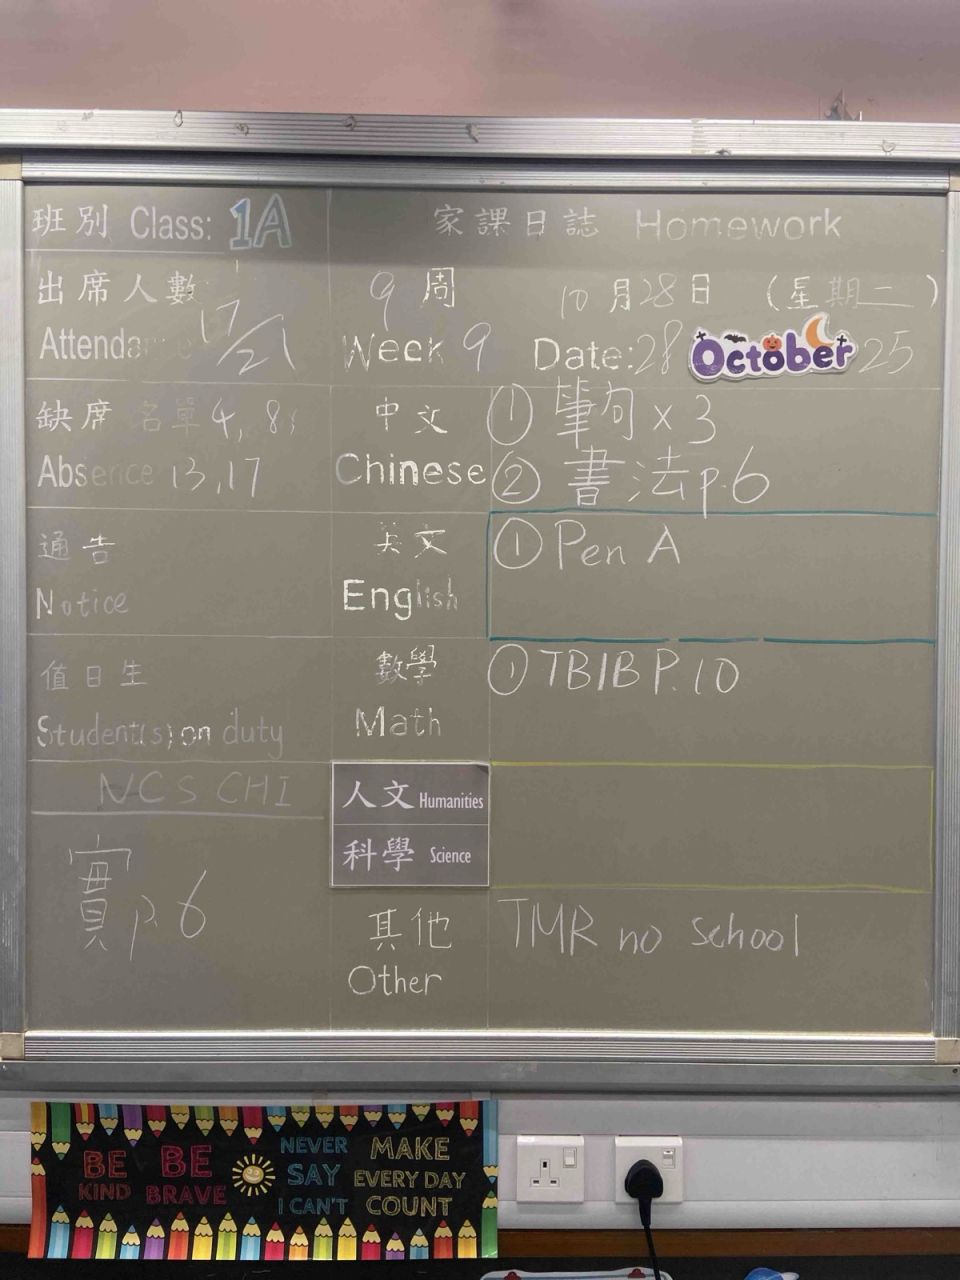 班別 Class: 1A
家課日誌 Homework
出席人數
Attendance 17/21
9周 10月28日 (星期二)
Week 9 Date: 28 October 25
缺席名單 4, 8,
Absence 13, 17
中文
Chinese
① 筆句 x 3
② 書法 p.6
通告
Notice
英文
English
① Pen A
值日生
Student(s) on duty
數學
Math
① TB1B P.10
NCS CHI
實 p.6
人文 Humanities
科學 Science
其他
Other
TMR no school
BE KIND
BE BRAVE
NEVER SAY I CAN'T
MAKE EVERY DAY COUNT